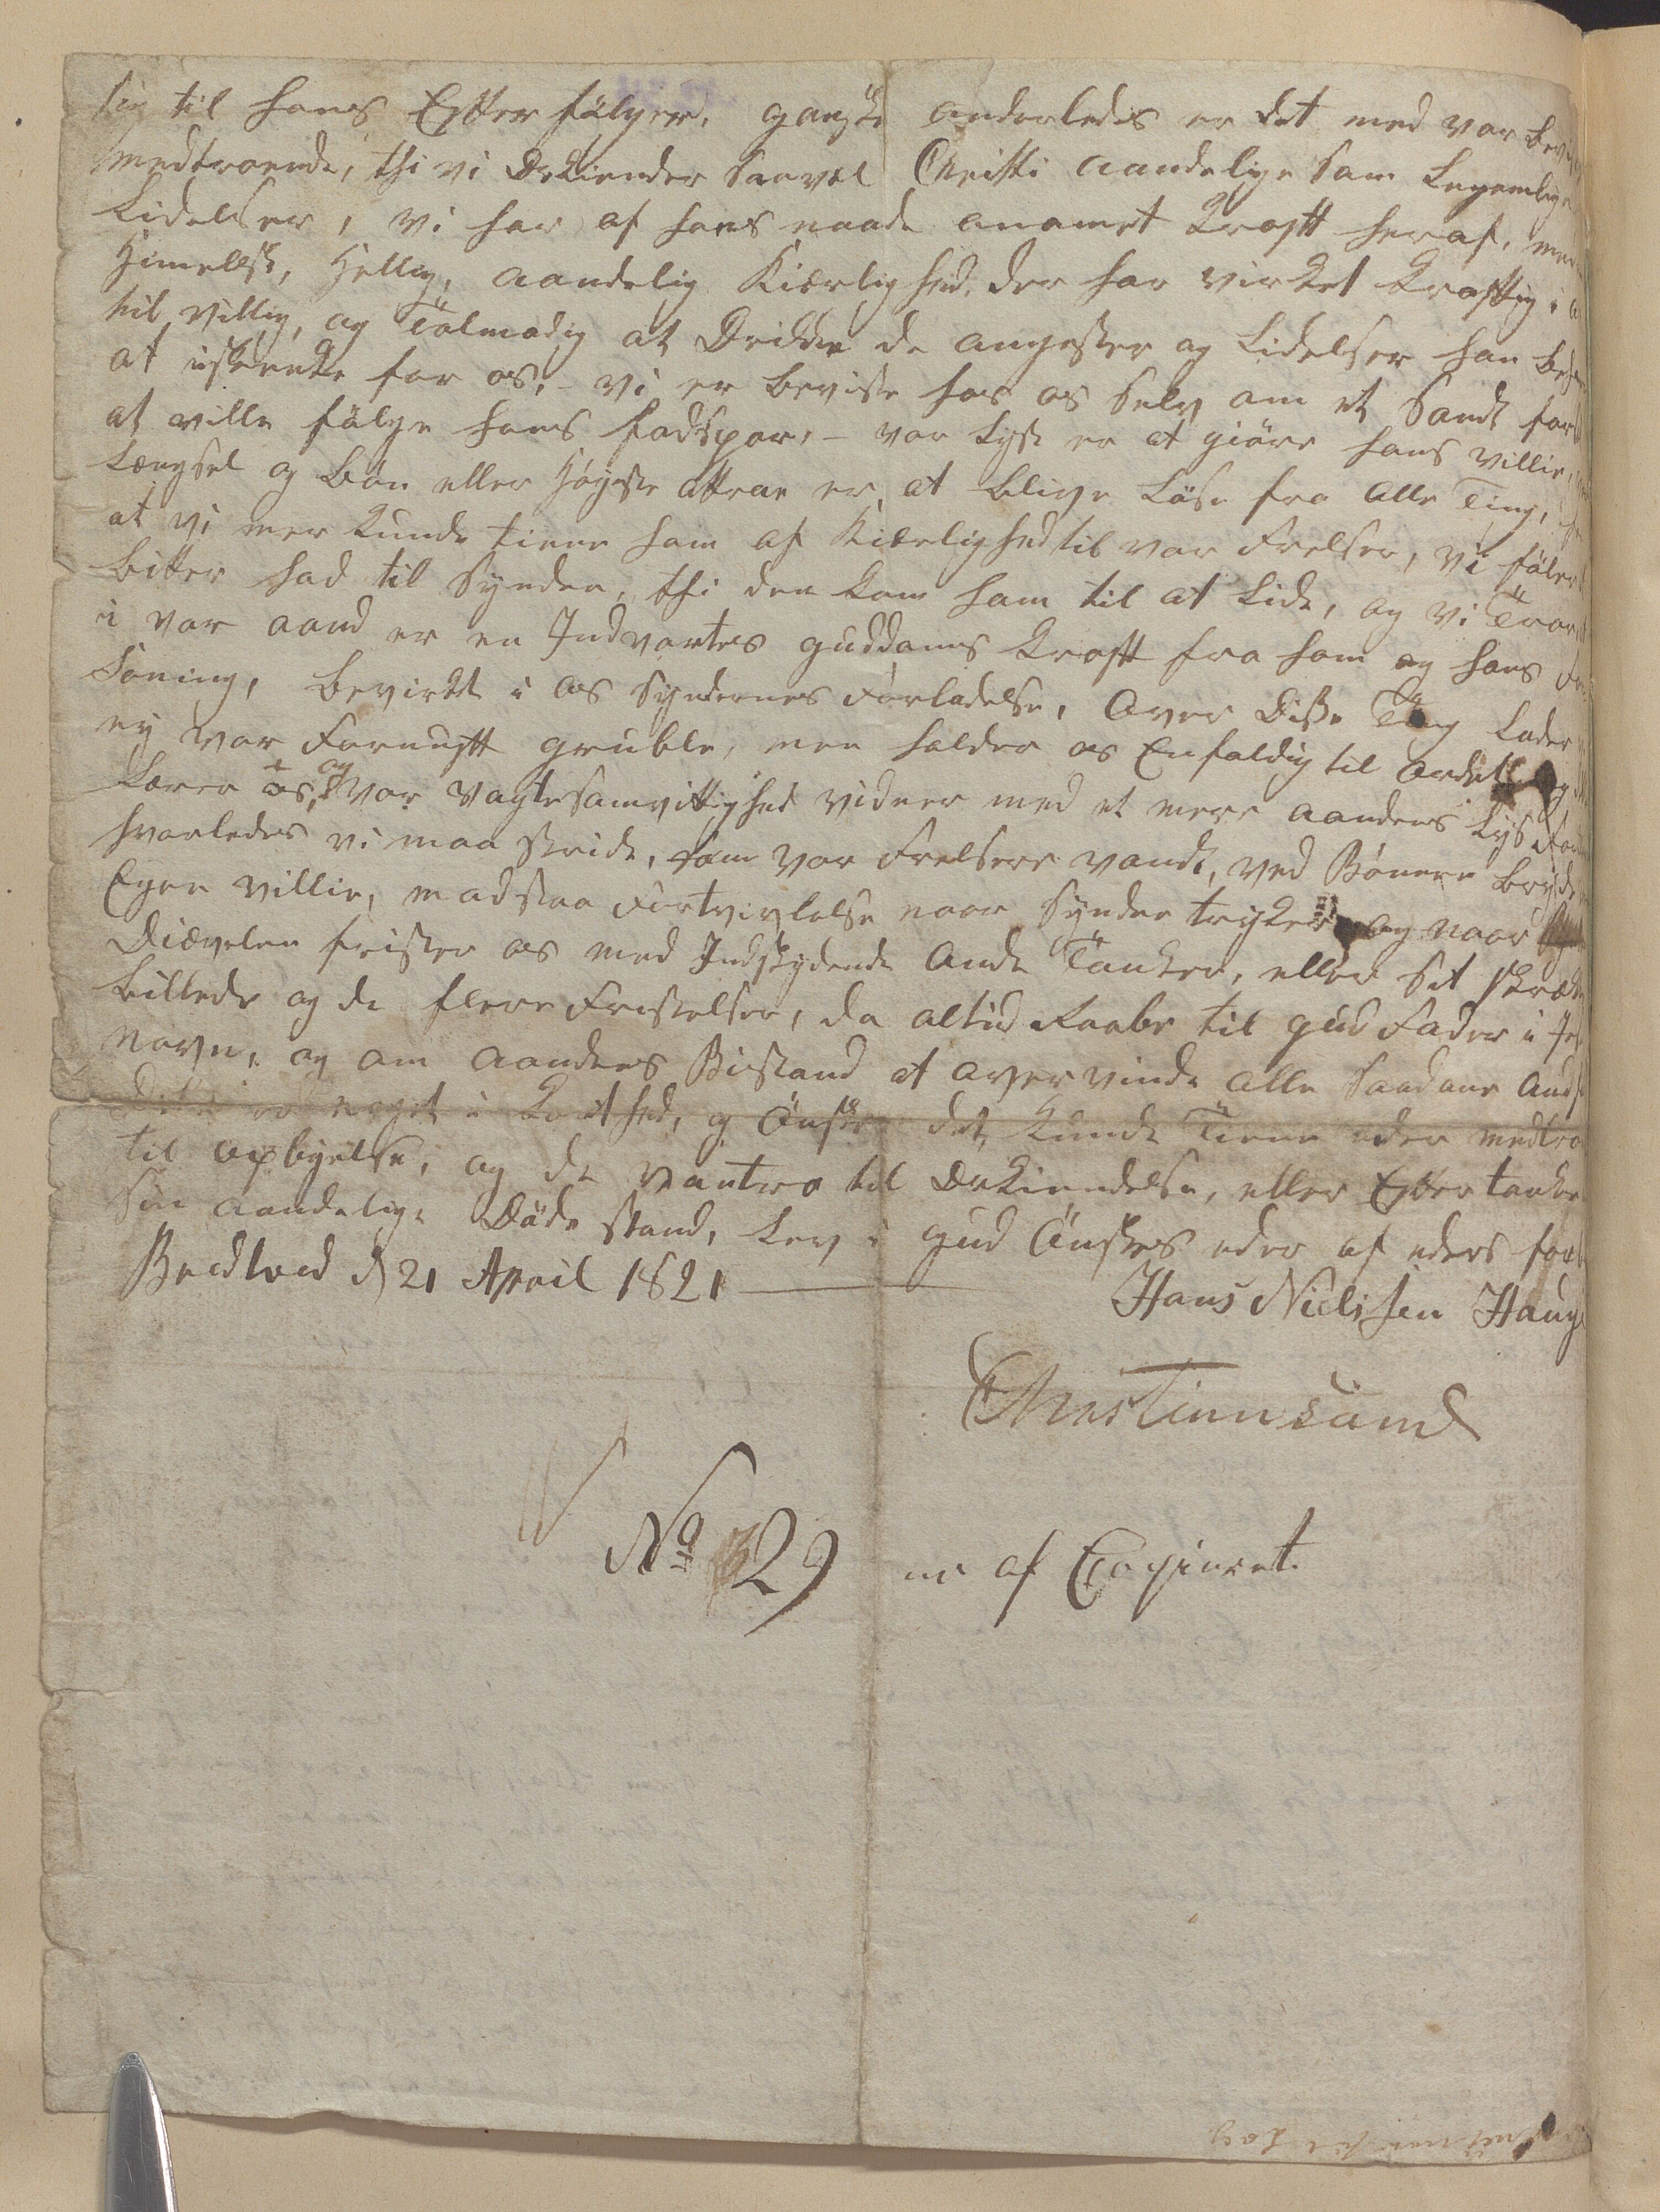 sig til hans Efterfølgere. ganske anderledes er det med vor
medtroende, thi vi Erkiender saavel Christi aandelige som Legemlige
Lidelser, vi har af hans naade anamet Kraft heraf,
Himelsk, Hellig, aandelig Kiærlighed, der har virket kraftig i
til villig, og Tolmodig at Drikke de angester og Lidelser han
at iskienke for os, – vi er beviste hos os selv om et Sandt
at ville følge hans fodspor, – vor Lyst er at giøre hans villie,
Længsel og bøn eller Høyeste attraa er, at blive Løse fra alle Ting,
at vi mer kunde tiene ham af Kiærlighed til vor Frelser, vi føler
bitter had til Synden, thi den kom ham til at Lide, og vi Troe
i vor aand er en Indvortes guddoms kraft fra ham og hans
Soning, bevirket i os Syndernes Forladelse, Over Disse Ting Lader
ey vor Fornuft gruble, men holder os Enfoldig til ordet
Lærer os, og vor vagte samvittighed vidner med et mere aandens Lys
hvorledes vi maa stride, som vor Frelsere vandt, ved Bønnen bryde
Egen villie, modstaa Fortvivlelse naar Synden trykker og naar
Diævelen frister os med Indskydende Onde Tanker, eller sit
billede og de flere Fristelser, da altiid Raabe til gud Fader i
navn, og om aandens Bistand at overvinde alle Saadane
noget i Korthed, Ønsker det kunde Tiene eder
til opbygelse, og de vantro til Erkiendelse, eller Eftertanke
sin aandelige Døde stand, Lev i gud Ønskes eder af eders
Bredtved d 21 April 1821
Hans Nielssen Hauge
Christiansund
No 29 er af Copieret.